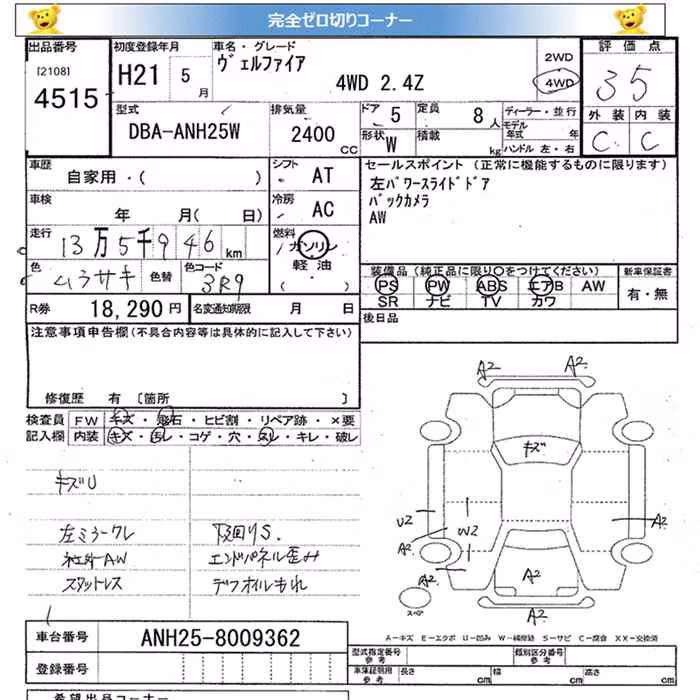 完全ゼロ切りコーナー
出品番号 初度登録年月 車名・グレード 評価点
[2108] H21 5月 ヴェルファイア 2WD 35
4515 4WD 2.4Z 4WD
型式 排気量 ドア 5 定員 8人 ディーラー・並行 外装 内装
DBA-ANH25W 2400CC 形状 W 積載 kg モデル年式 年 C C
ハンドル 左・右
車歴 シフト AT セールスポイント (正常に機能するものに限ります)
自家用・( ) 左パワースライドドア
車検 冷房 AC バックカメラ
年 月( 日) AW
走行 13万5千946km 燃料 ガソリン
色 ムラサキ 色替 色コード 3R9 軽油 ( )
装備品(純正品に限り○をつけてください) 新車保証書
PS PW ABS エアB AW 有・無
SR ナビ TV カワ
R券 18,290円 名変通知期限 月 日 後日品
注意事項申告欄(不具合内容等は具体的に記入して下さい)
修復歴 有 [箇所 ]
検査員 FW キズ・飛石・ヒビ割・リペア跡・×要
記入欄 内装 キズ・ヨレ・コゲ・穴・スレ・キレ・破レ
キズU
左ミラーワレ 下回りS.
社外AW エンドパネル歪み
スタットレス デフオイルもれ
A2 A2
キズ
U2 W2 A2
A2
A2 A2
スペア A2
A-キズ E-エクボ U-凹み W-補修跡 S-サビ C-腐食 XX-交換済
車台番号 ANH25-8009362
型式指定番号 参考 類別区分番号 参考
登録番号 車庫証明用 参考 長さ cm 幅 cm 高さ cm
希望出品コーナー